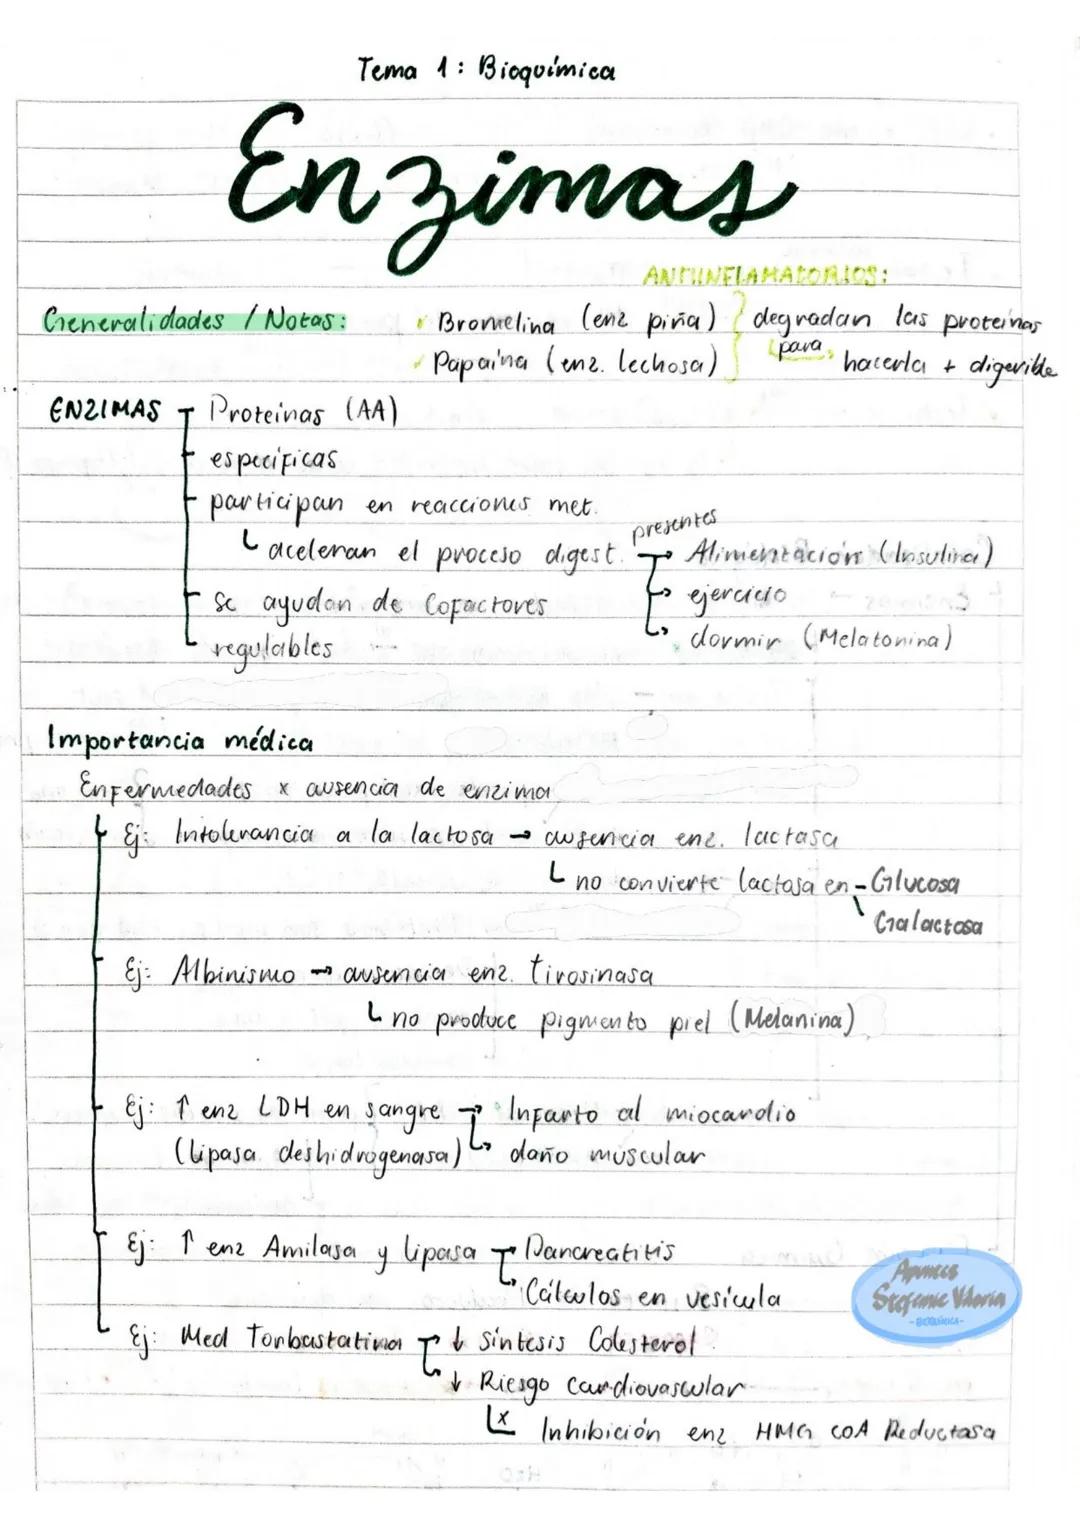 Tema 1: Bioquímica
Enzimas
ANTIINFLAMATORIOS:
Generalidades / Notas:
Bromelina (enz piña)
Papaína (enz. lechosa)
degradan las proteínas
para hacerla + digerible
ENZIMAS
Proteínas (AA)
específicas
participan en reacciones met.
aceleran el proceso digest.
presentes
Alimentación (Insulina)
ejercicio
dormir (Melatonina)
se ayudan de Cofactores
regulables
Importancia médica
Enfermedades x ausencia de enzima
Ej: Intolerancia a la lactosa → ausencia enz. lactasa
no convierte lactosa en - Glucosa
Galactosa
Ej: Albinismo → ausencia enz. tirosinasa
no produce pigmento piel (Melanina)
Ej: ↑ enz LDH en sangre → Infarto al miocardio
(lipasa deshidrogenasa) → daño muscular
Ej: ↑ enz Amilasa y lipasa → Pancreatitis
Cálculos en vesícula
Ej: Med Torbastatina → ↓ síntesis Colesterol
↓ Riesgo cardiovascular
x Inhibición enz HMG COA Reductasa
Apuntes
Stefanie Viloria
-BIOQUÍMICA-